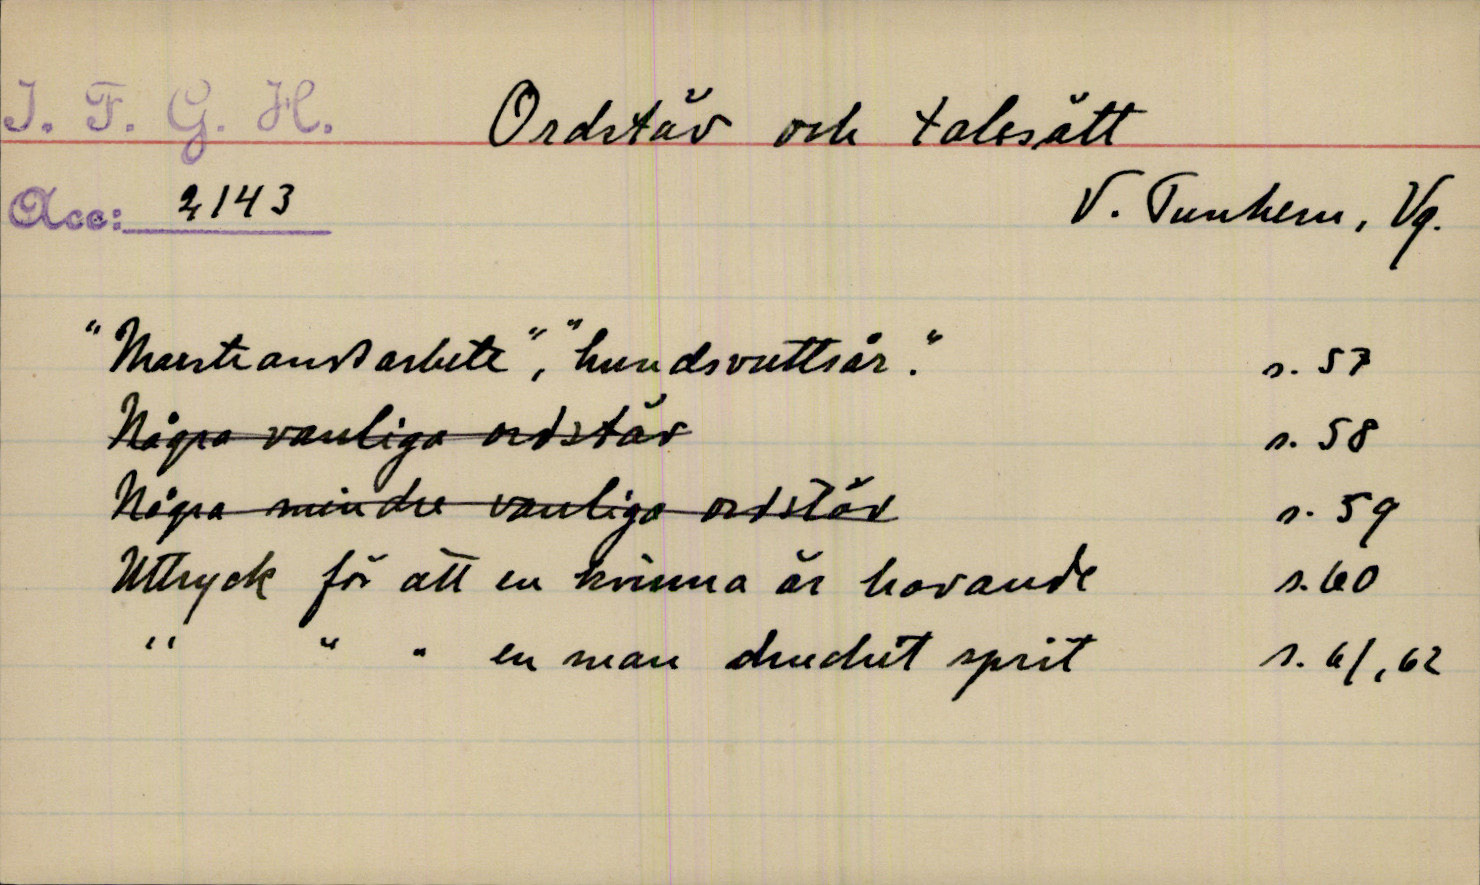 I. F. G. H.
Ordstäv och talesätt
Acc: 2143
V. Tunhem, Vg.
"Marstrandsarbete", "hundsvuttsår." s. 57
Några vanliga ordstäv s. 58
Några mindre vanliga ordstäv s. 59
Uttryck för att en kvinna är havande s. 60
" " " en man druckit sprit s. 61, 62